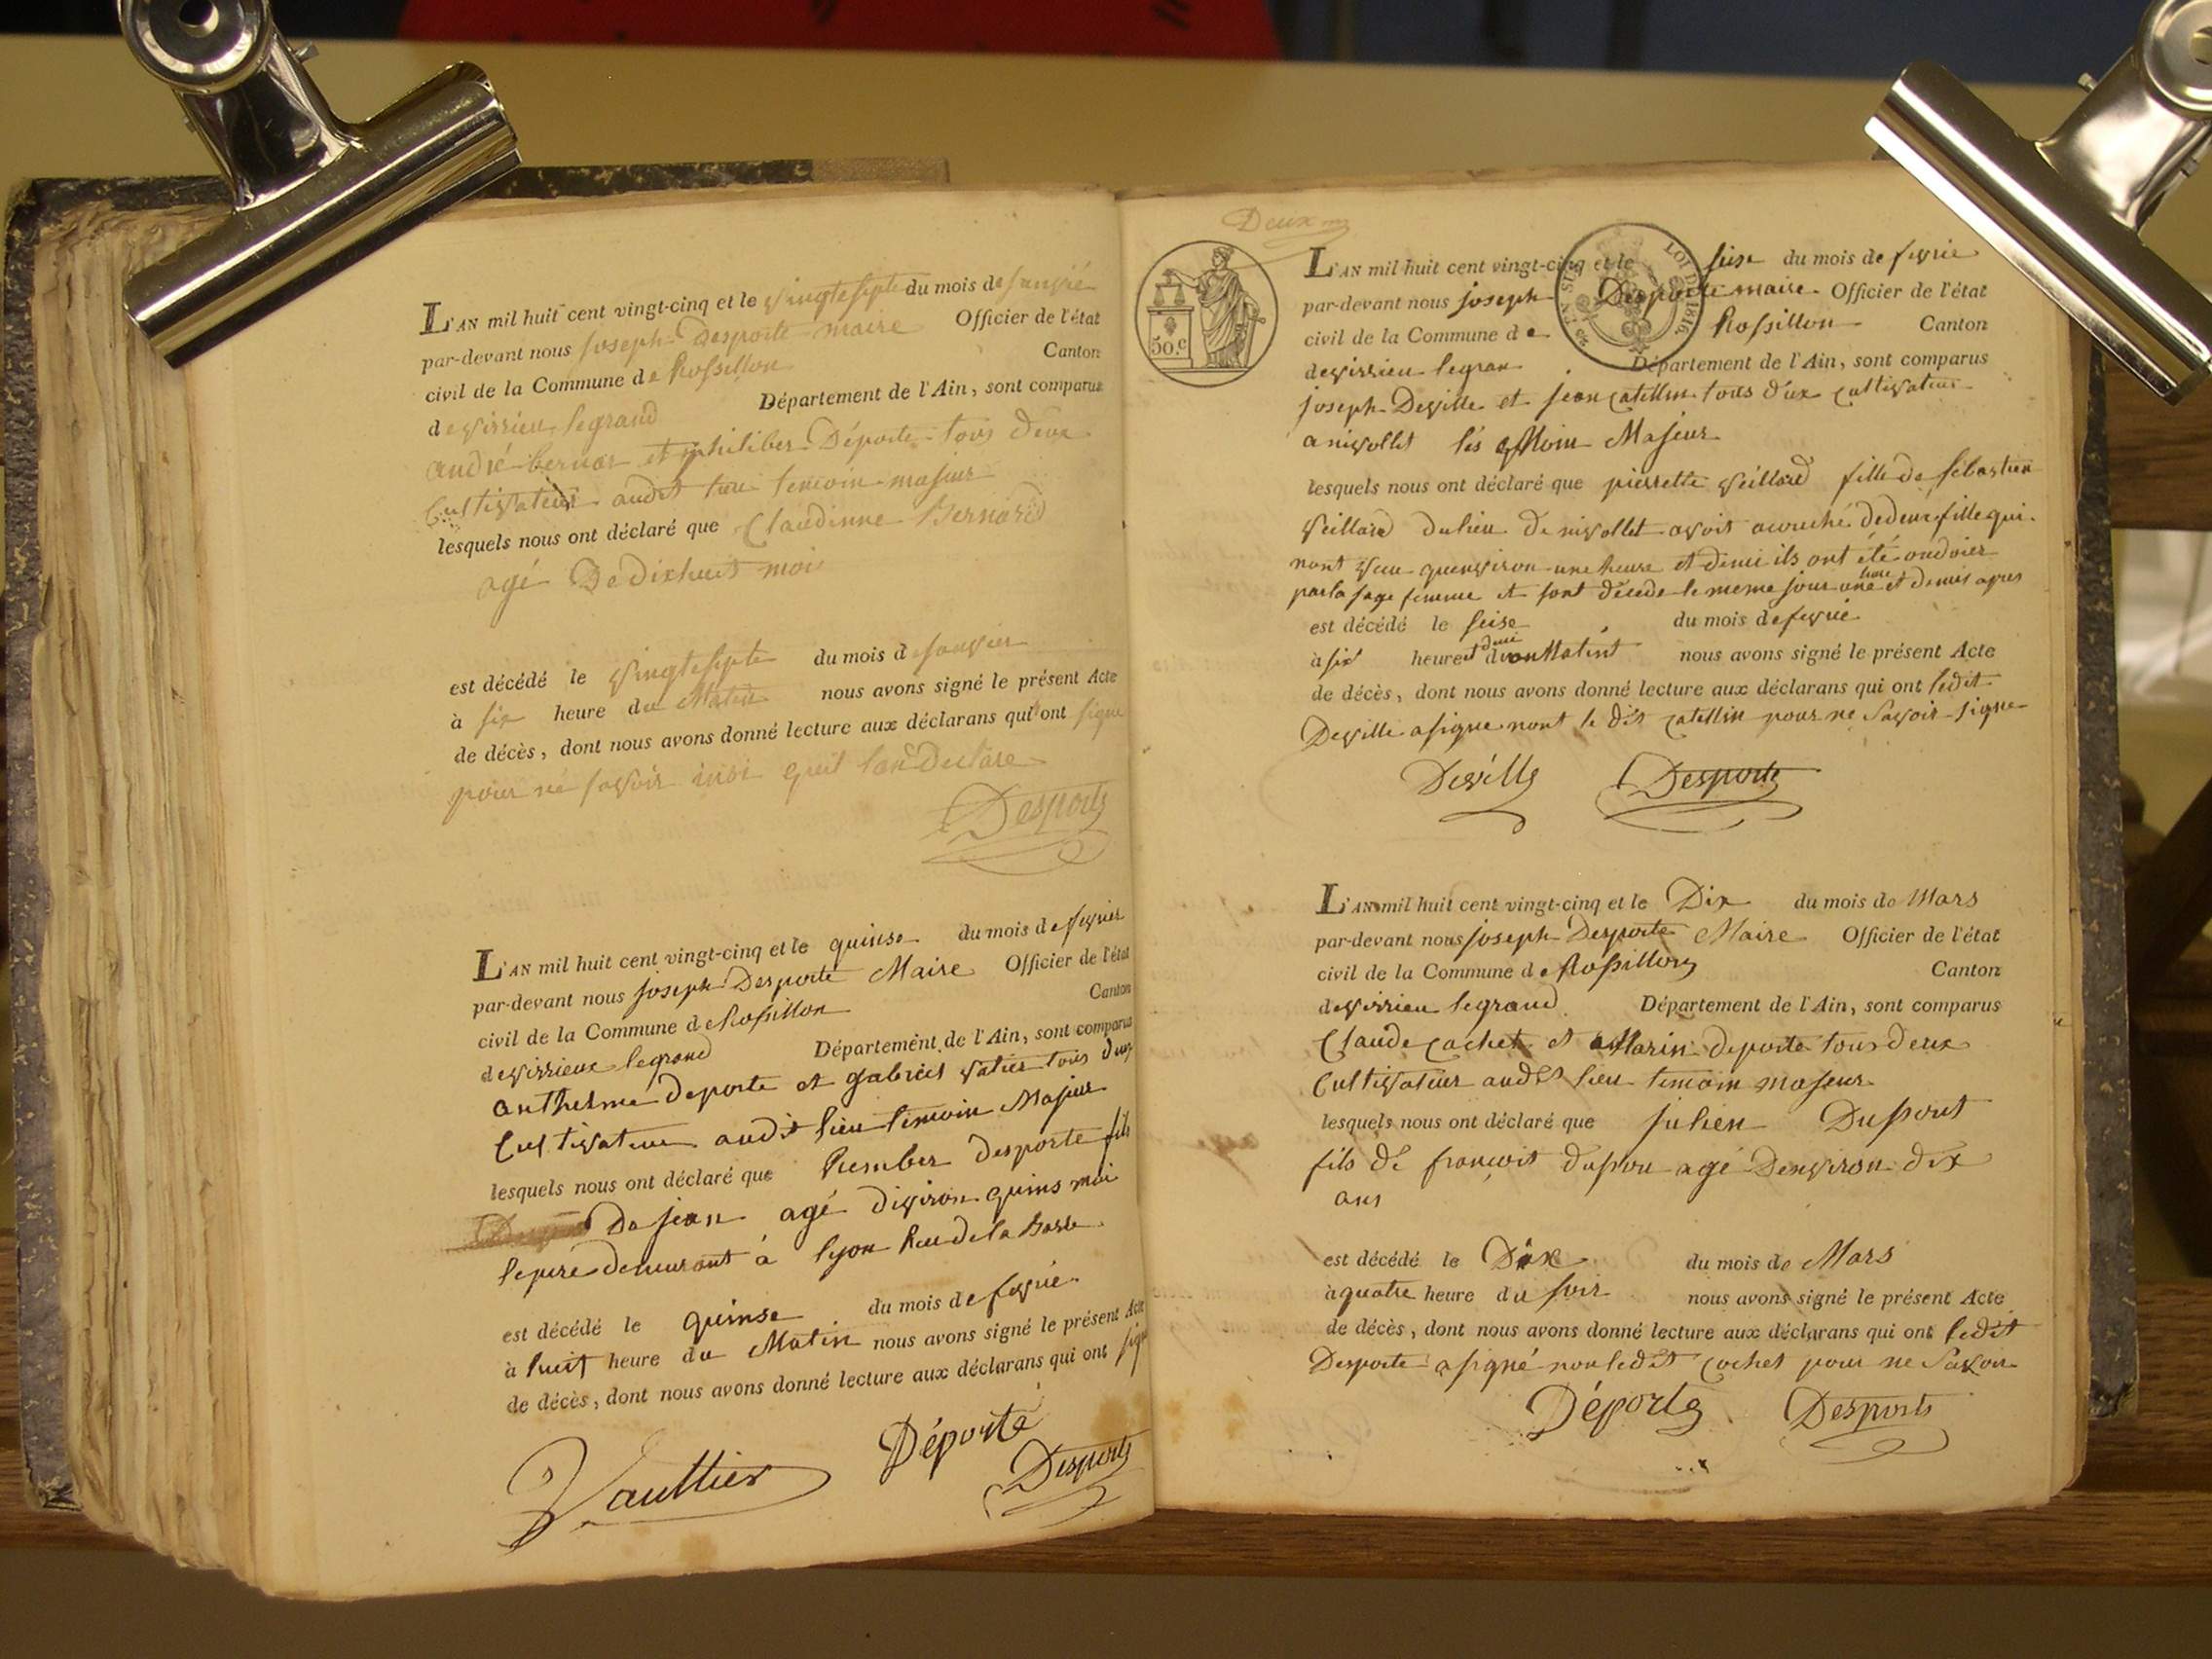 L'AN mil huit cent vingt-cinq et le vingtesepte du mois de janvié
par-devant nous joseph Desporte maire Officier de l'état
civil de la Commune de Rossillon Canton
de virrieu legrand Département de l'Ain, sont comparus
andré bernar et philiber Déporte tous deux
Cultivateur audit lieu temoin majeur
lesquels nous ont déclaré que Claudinne Bernard
agé De dixhuit moi
est décédé le vingtesepte du mois de janvier
à six heure du Matin nous avons signé le présent Acte
de décès, dont nous avons donné lecture aux déclarans qui ont signe
pour ne savoir insi quil lon Declare
Desporte
L'AN mil huit cent vingt-cinq et le quinse du mois de fevrier
par-devant nous joseph Desporte Maire Officier de l'état
civil de la Commune de Rossillon Canton
de virrieux legrand Département de l'Ain, sont comparus
anthelme deporte et gabriel vatier tous deux
Cultivateur audit lieu temoin Majeur
lesquels nous ont déclaré que humber desporte fils
De jean agé diviron quins moi
lepere demeurant à lyon Rue de la
est décédé le quinse du mois de fevrié
à huit heure du Matin nous avons signé le présent Acte
de décès, dont nous avons donné lecture aux déclarans qui ont signé
Vaultier Déporte
Desporte
Deux
50.c
LOI DE 1816.
L'AN mil huit cent vingt-cinq et le seise du mois de fevrié
par-devant nous joseph Desporte maire Officier de l'état
civil de la Commune de Rossillon Canton
de virrieu legran Département de l'Ain, sont comparus
joseph Deville et jean catellin tous d'ux cultivateur
a nivollet lés Moin Majeur
lesquels nous ont déclaré que pierrette veillard fille de sébastien
veillard du lieu de nivollet avoit acouché de deux fille qui
nont veu quenviron une heure et demi ils ont été ondoier
par la sage femme et sont décede le meme jour une heure et demis apres
est décédé le seise du mois de fevrié
à six heure et demi du Matint nous avons signé le présent Acte
de décès, dont nous avons donné lecture aux déclarans qui ont ledit
Deville a signe nont le dit catellin pour ne savoir signe
Deville Desporte
L'AN mil huit cent vingt-cinq et le Dix du mois de Mars
par-devant nous joseph Desporte Maire Officier de l'état
civil de la Commune de Rossillon Canton
de virrieu legrand Département de l'Ain, sont comparus
Claude cochet et Marin deporte tous deux
Cultivateur audit lieu temoin majeur
lesquels nous ont déclaré que julien Dupont
fils de françoit dupon agé Denviron dix
ans
est décédé le Dix du mois de Mars
à quatre heure du soir nous avons signé le présent Acte
de décès, dont nous avons donné lecture aux déclarans qui ont ledit
Desporte a signé non ledit cochet pour ne Savoir
Déporte Desporte